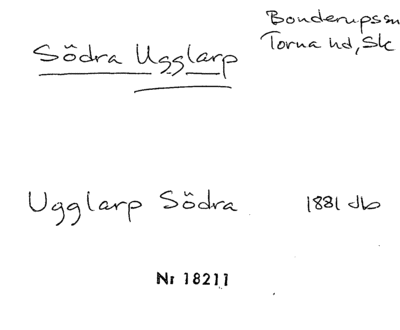 Södra Ugglarp
Bonderupssn
Torna hd, Sk
Ugglarp Södra 1881 db
Nr 18211